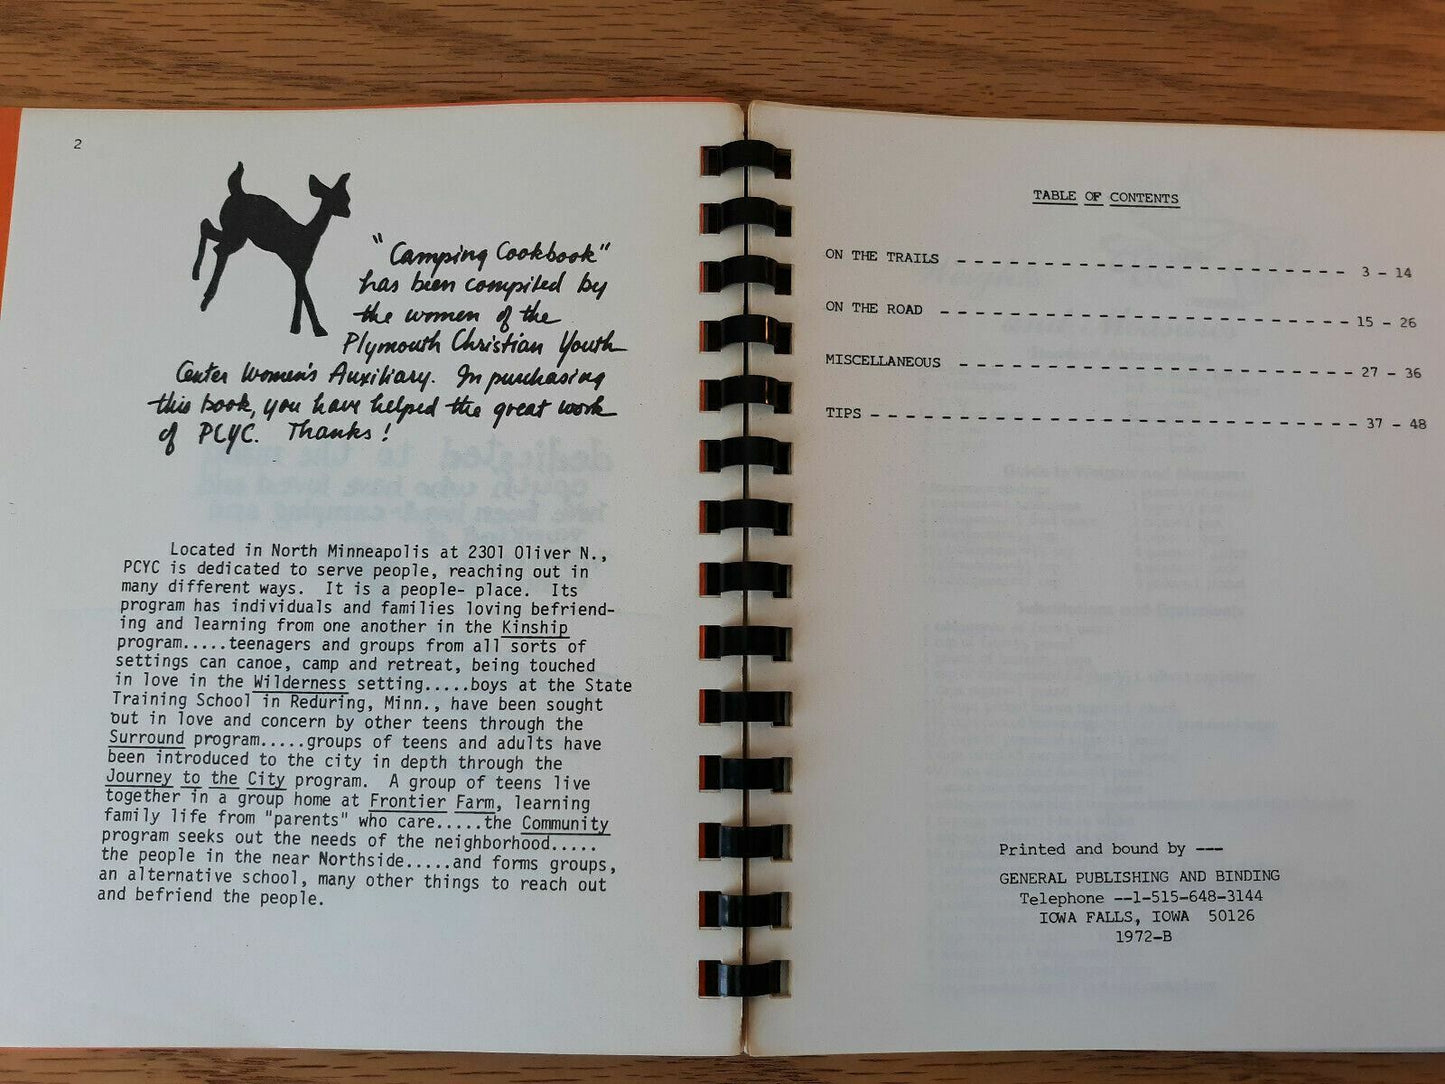 2
"Camping Cookbook"
has been compiled by
the women of the
Plymouth Christian Youth
Center Women's Auxiliary. In purchasing
this book, you have helped the great work
of PCYC. Thanks!
Located in North Minneapolis at 2301 Oliver N.,
PCYC is dedicated to serve people, reaching out in
many different ways. It is a people- place. Its
program has individuals and families loving befriend-
ing and learning from one another in the Kinship
program.....teenagers and groups from all sorts of
settings can canoe, camp and retreat, being touched
in love in the Wilderness setting.....boys at the State
Training School in Reduring, Minn., have been sought
out in love and concern by other teens through the
Surround program.....groups of teens and adults have
been introduced to the city in depth through the
Journey to the City program. A group of teens live
together in a group home at Frontier Farm, learning
family life from "parents" who care.....the Community
program seeks out the needs of the neighborhood.....
the people in the near Northside.....and forms groups,
an alternative school, many other things to reach out
and befriend the people.
TABLE OF CONTENTS
ON THE TRAILS - - - - - - - - - - - - - - - - - - - - - - - - - - - - - - 3 - 14
ON THE ROAD - - - - - - - - - - - - - - - - - - - - - - - - - - - - - - - 15 - 26
MISCELLANEOUS - - - - - - - - - - - - - - - - - - - - - - - - - - - - - - 27 - 36
TIPS - - - - - - - - - - - - - - - - - - - - - - - - - - - - - - - - - - - 37 - 48
Printed and bound by ---
GENERAL PUBLISHING AND BINDING
Telephone --1-515-648-3144
IOWA FALLS, IOWA 50126
1972-B